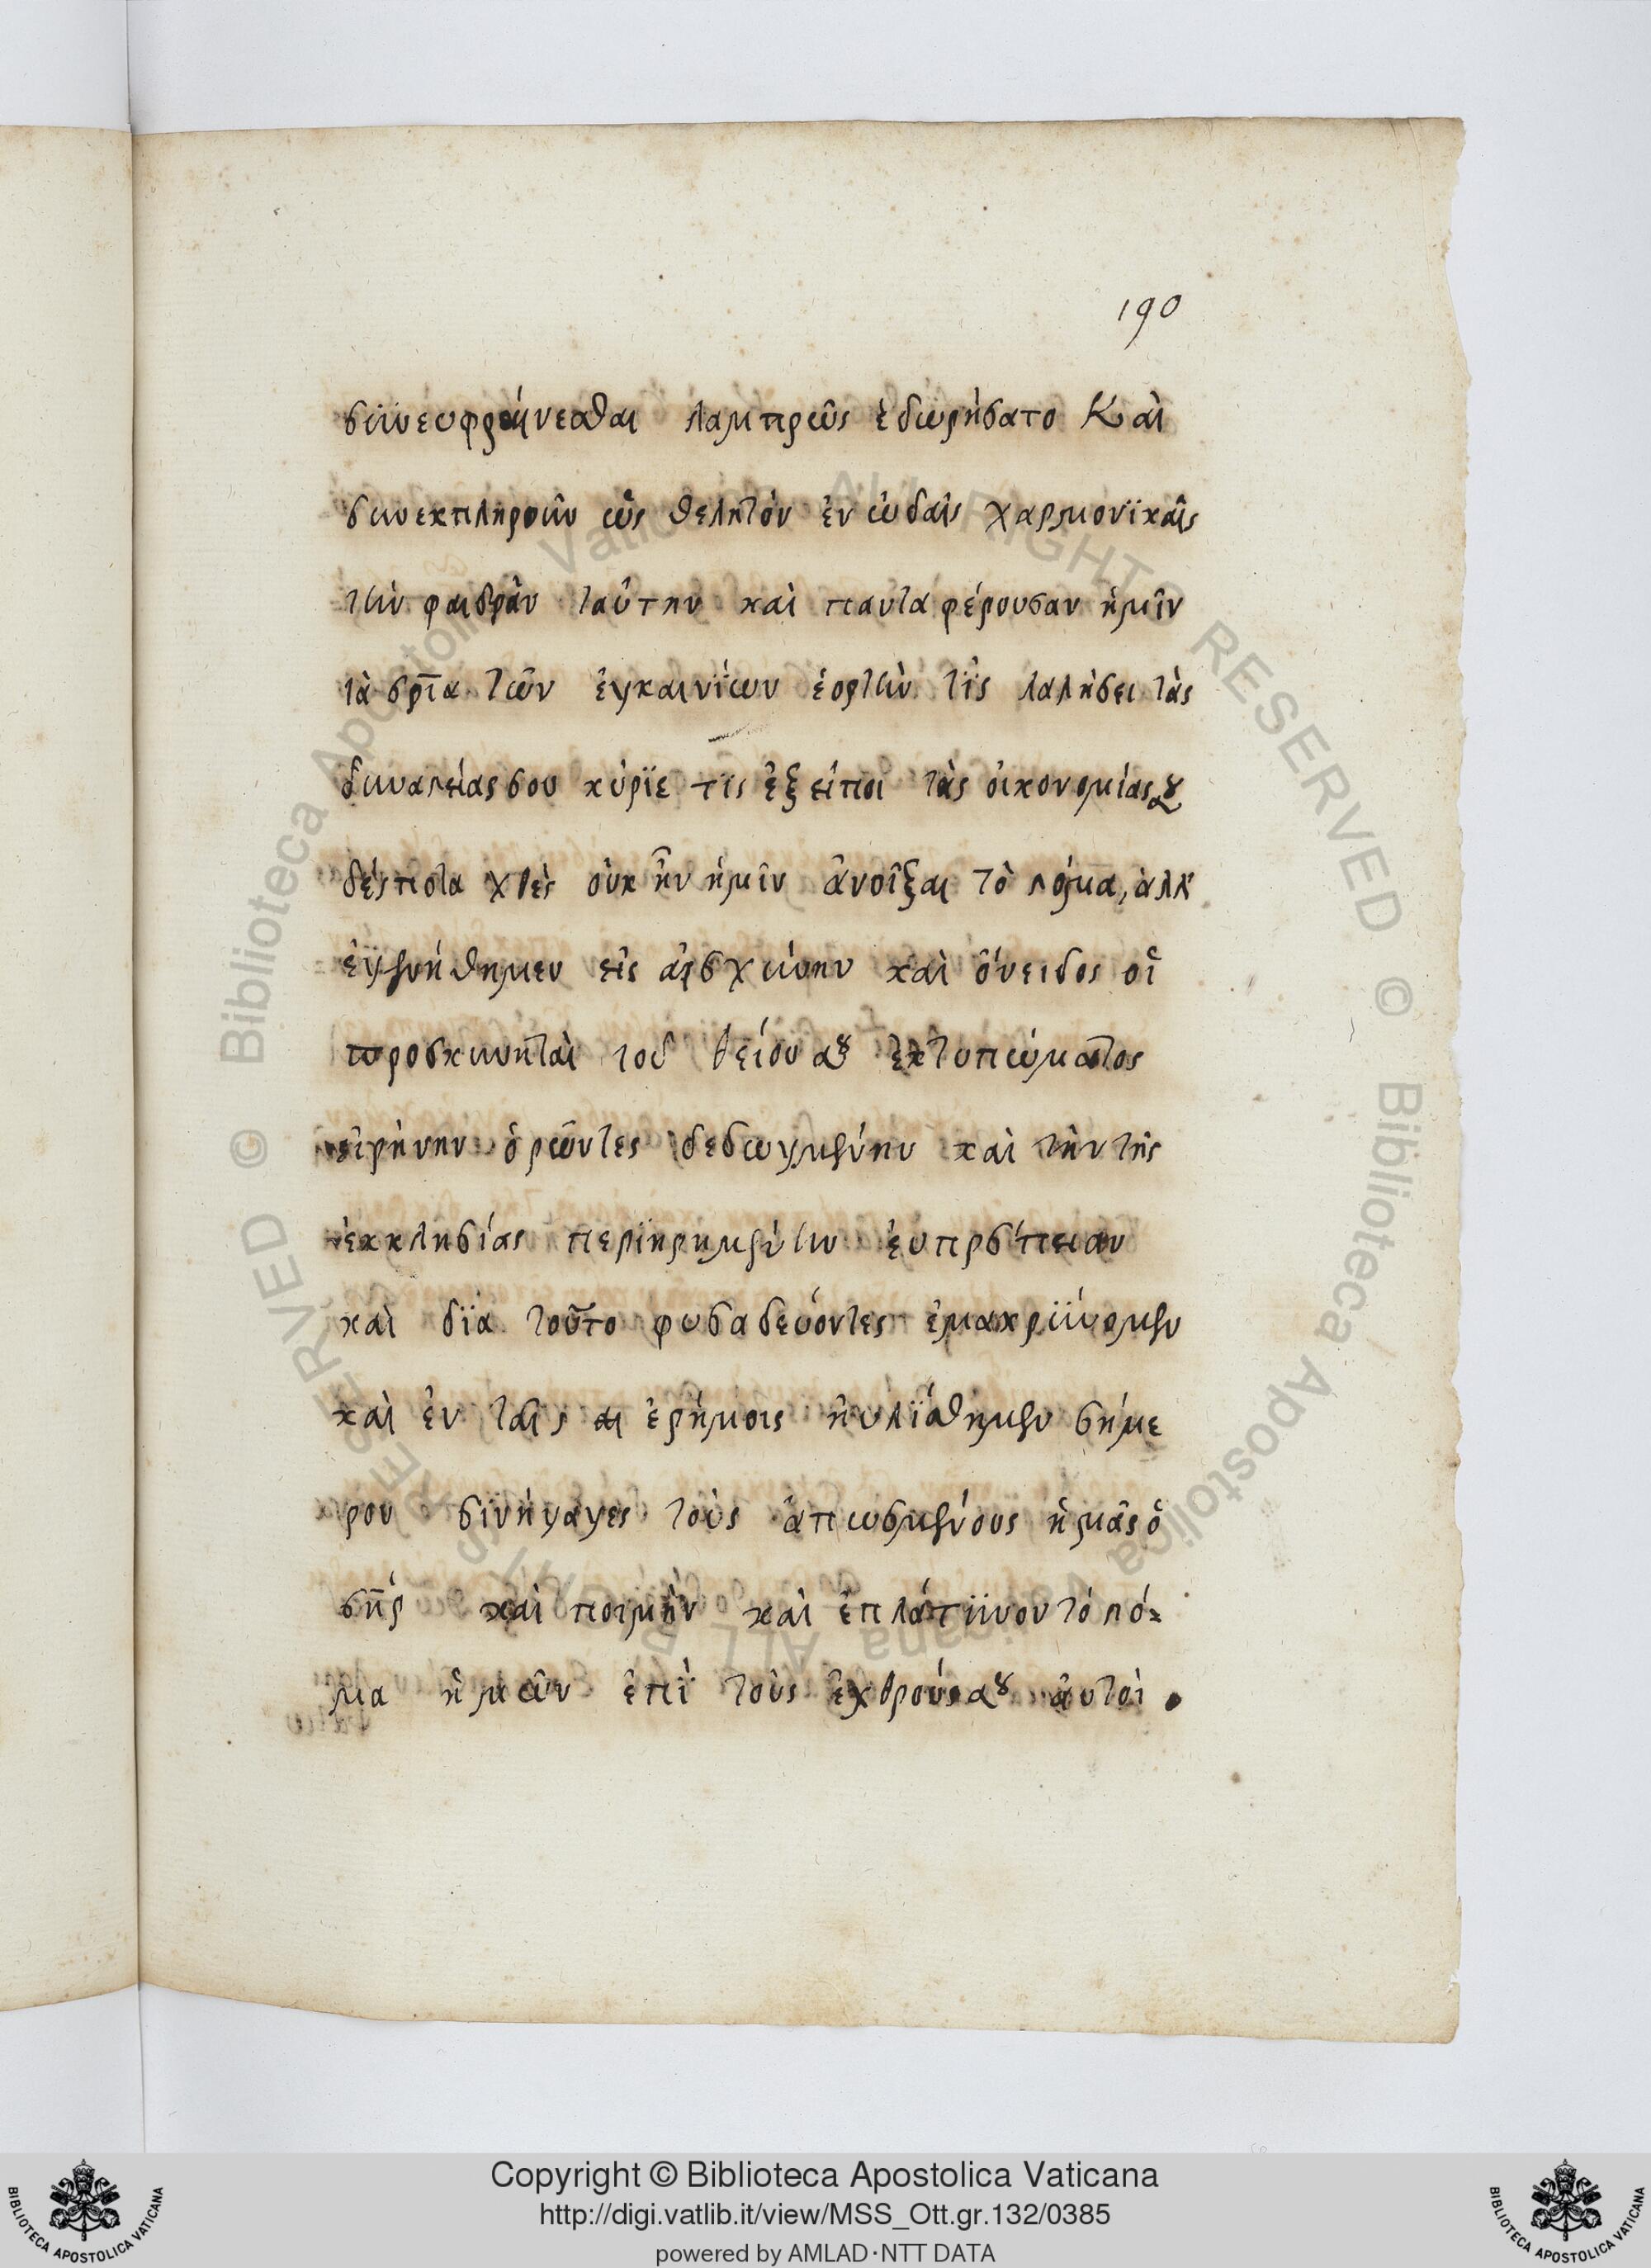 190
συνευφραίνεσθαι λαμπρῶς ἐδωρήσατο Καὶ
συνεκπληροῦν ὡς θελητὸν ἐν ὠδαῖς χαρμονϊκαῖς
τὴν φαιδρὰν ταύτην καὶ παντα φέρουσαν ἡμῖν
τὰ σρ̅ια τῶν ἐγκαινΐων ἑορτὴν τΐς λαλήσει τὰς
δυναστείας σου κύρϊε τΐς ἐξείποι τὰς οἰκονομίας σου
δέσποτα χθὲς οὐκ ἦν ἡμῖν ἀνοῖξαι τὸ στόμα, ἀλλ'
ἐγενήθημεν εἰς αἰσχύνην καὶ ὄνειδος οἱ
προσκυνηταὶ τοῦ θείου σου ἐκτυπώματος
εἰρήνην ὁρῶντες δεδωγμένην καὶ τὴν τῆς
ἐκκλησίας περϊηρημένην εὐπρέπειαν
καὶ δϊα τοῦτο φυγαδεύοντες ἐμακρΰνομεν
καὶ ἐν ταῖς αι ἐρήμοις ηὐλΐσθημεν σήμε
ρον σϊνήγαγες τοὺς ἀπωσμένους ἡμᾶς ὁ
σηρ καὶ ποιμὴν καὶ ἐπλάτϋνον τό στό-
μα ἡμῶν ἐπῒ τοὺς ἐχθρούς σου αὐτοὶ
Copyright © Biblioteca Apostolica Vaticana
http://digi.vatlib.it/view/MSS_Ott.gr.132/0385
powered by AMLAD·NTT DATA